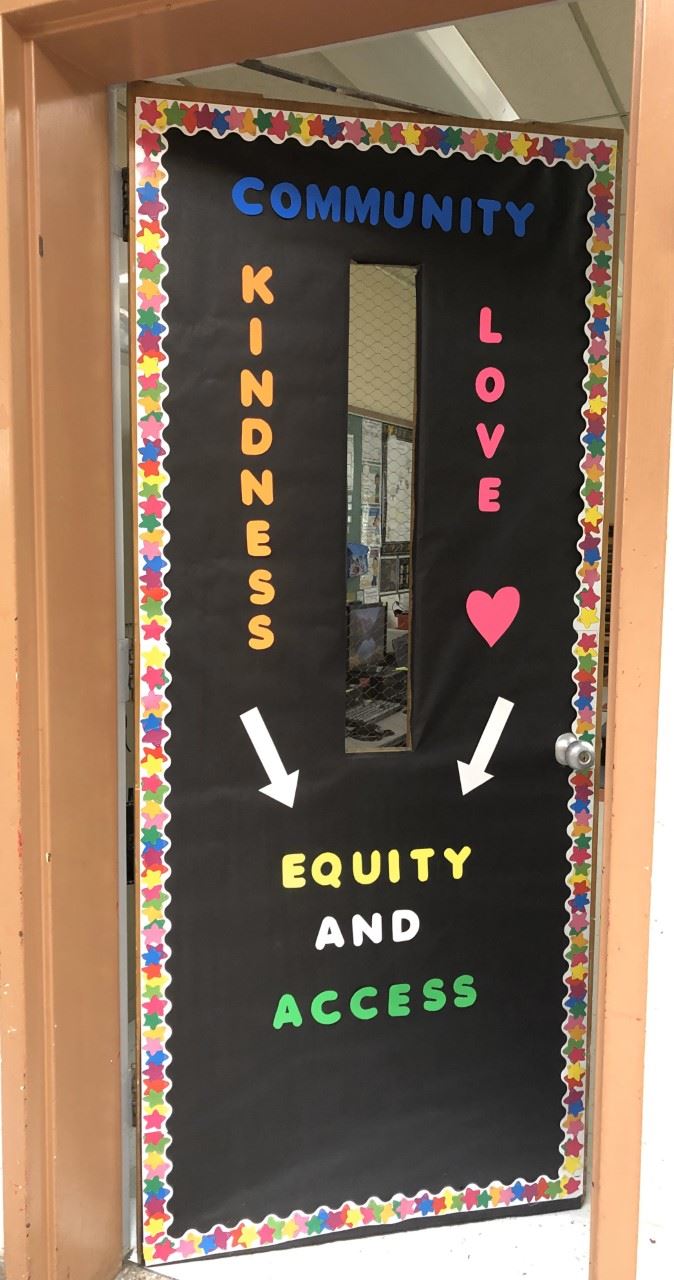 COMMUNITY
KINDNESS
LOVE
EQUITY
AND
ACCESS